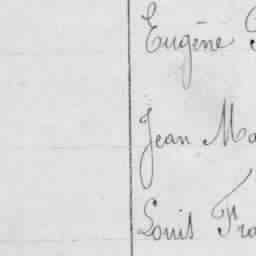 Eugène
Jean Ma
Louis Fra